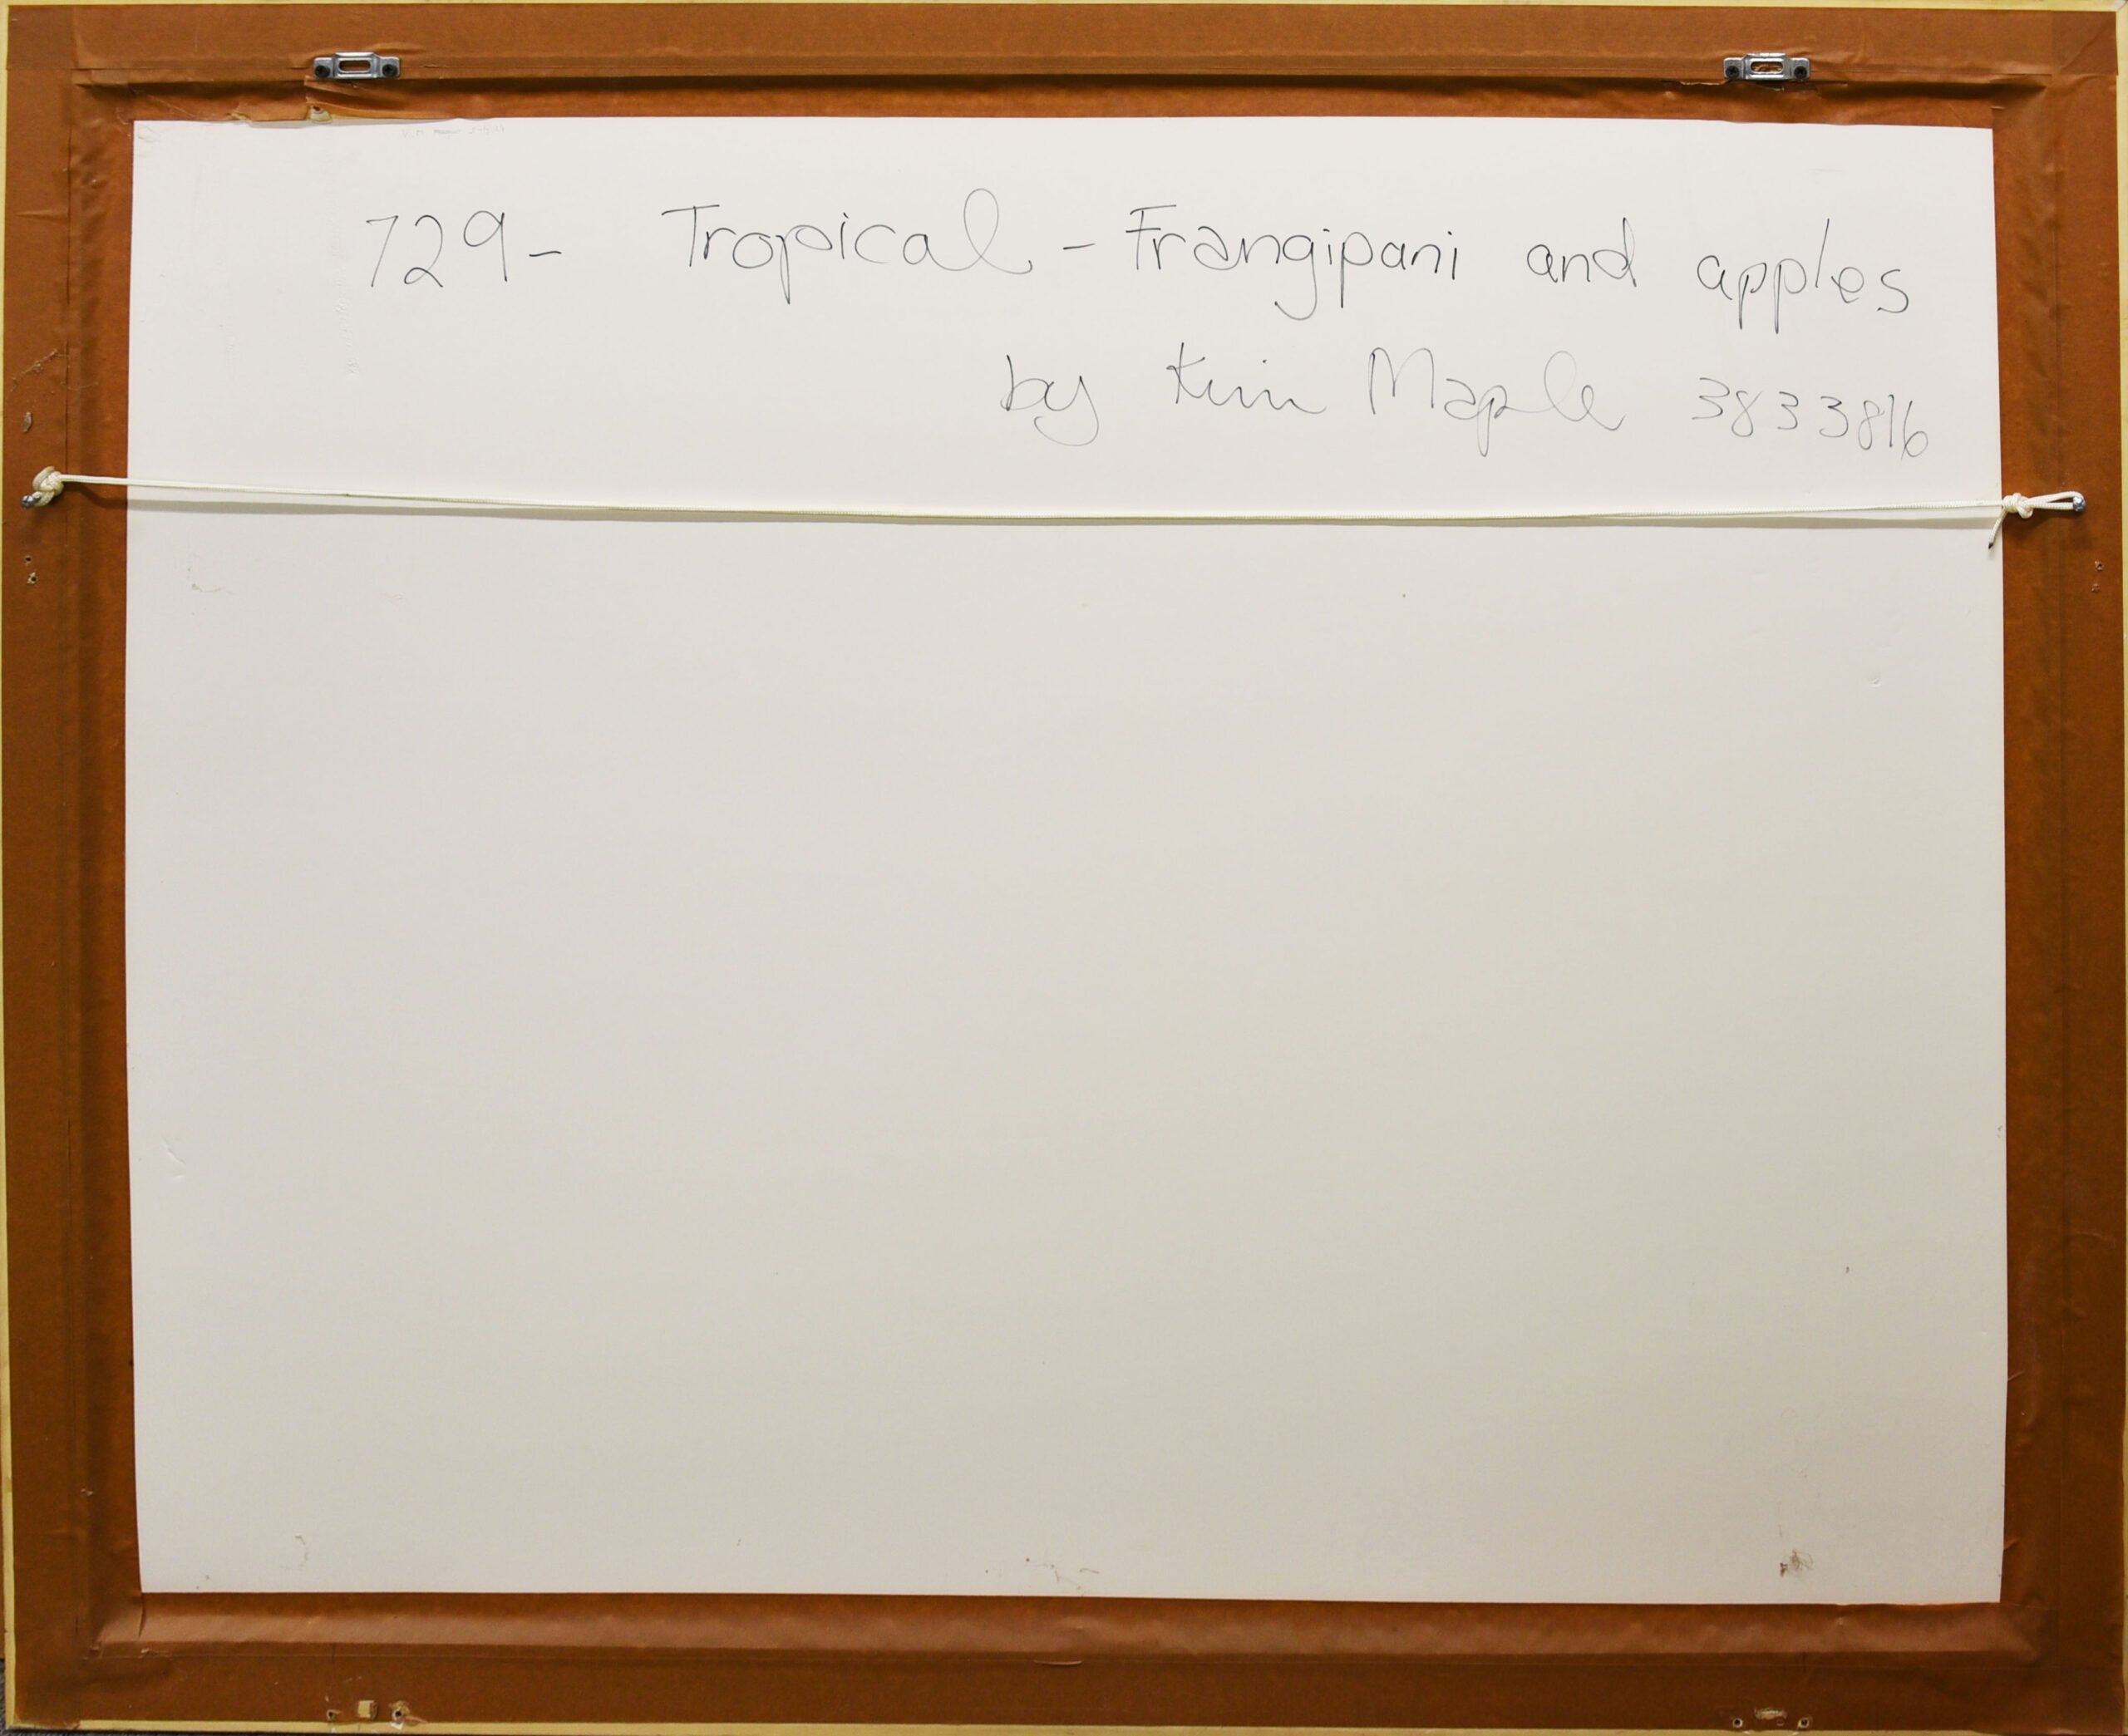 729- Tropical - Frangipani and apples
by Kim Maple 3833816